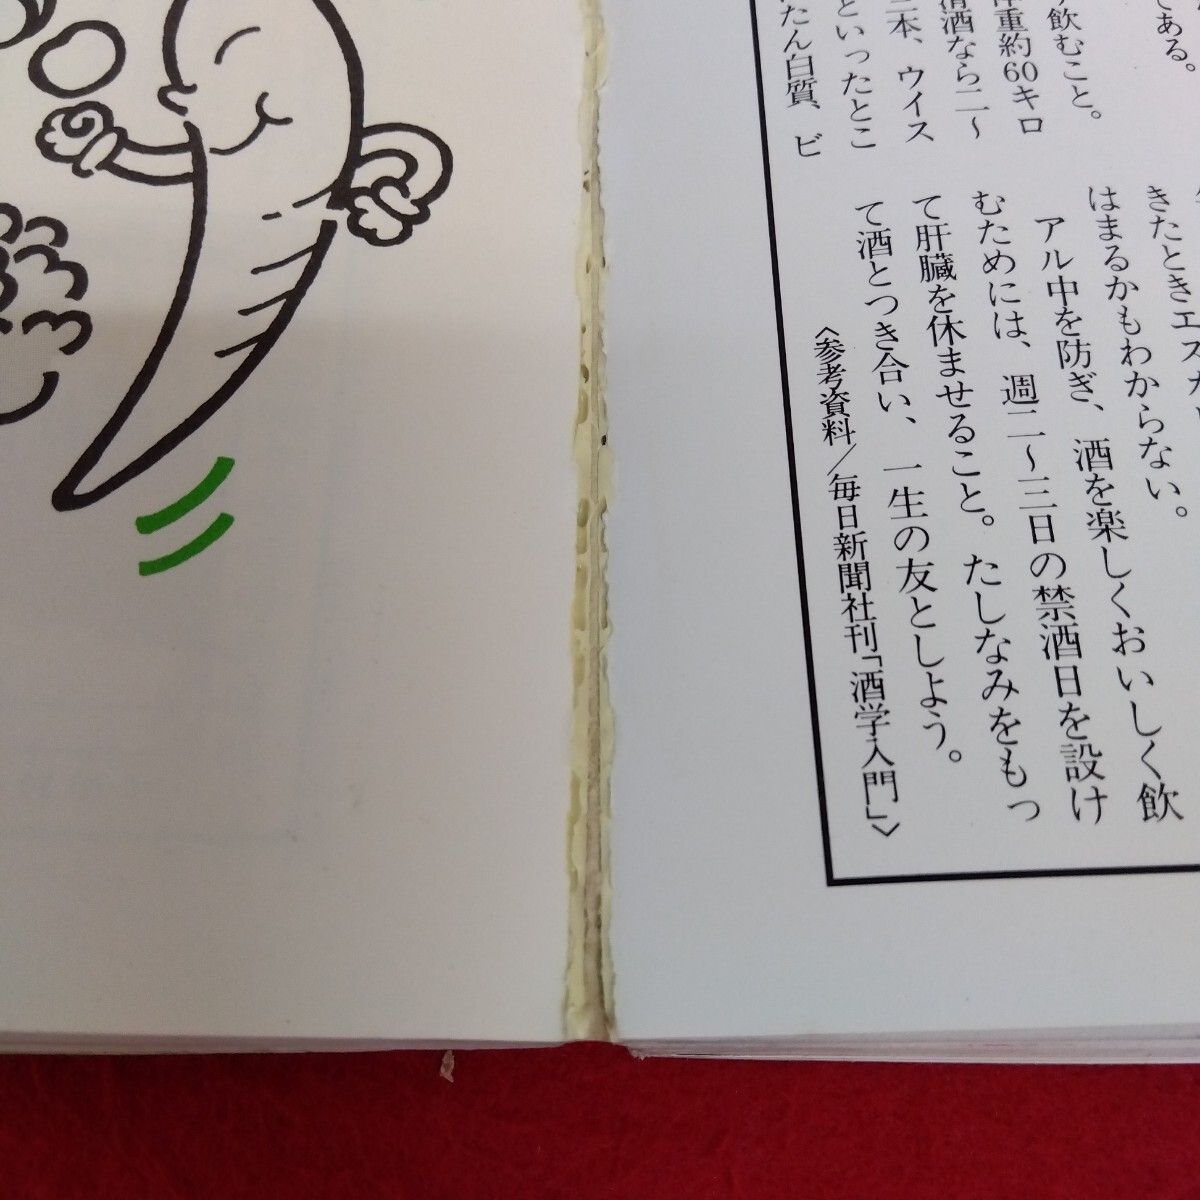 である。
飲むこと。
体重約60キロ
清酒なら二〜
三本、ウイス
といったとこ
たん白質、ビ
きたときエスカ
はまるかもわからない。
アル中を防ぎ、酒を楽しくおいしく飲
むためには、週二〜三日の禁酒日を設け
て肝臓を休ませること。たしなみをもっ
て酒とつき合い、一生の友としよう。
〈参考資料／毎日新聞社刊「酒学入門」〉